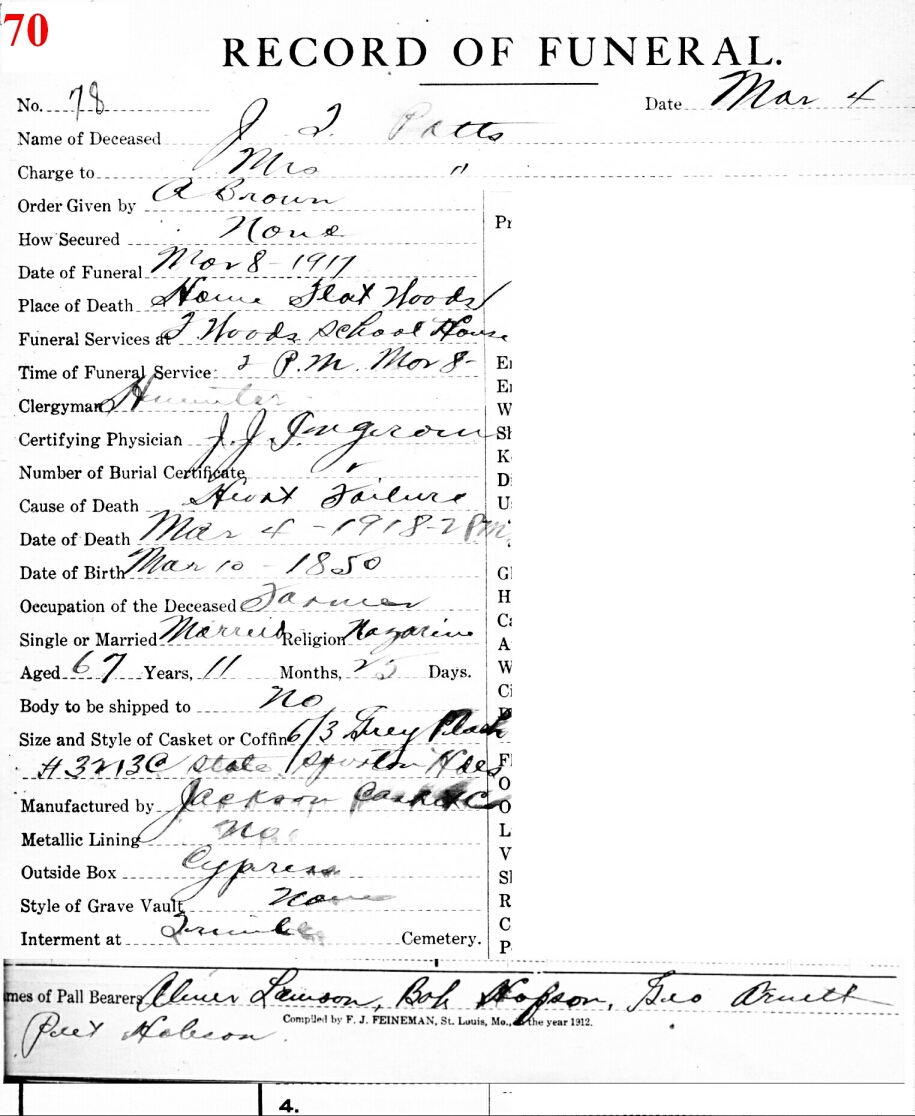 70
RECORD OF FUNERAL.
No. 78 Date Mar 4
Name of Deceased J T Potts
Charge to Mrs "
Order Given by A Brown
How Secured None
Date of Funeral Mar 8 - 1917
Place of Death Home Flat Woods
Funeral Services at F Woods School House
Time of Funeral Service: 2 P.M. Mar 8-
Clergyman
Certifying Physician J. J.
Number of Burial Certificate
Cause of Death Heart Failure
Date of Death Mar 4 - 1918 - 2 PM.
Date of Birth Mar 10 - 1850
Occupation of the Deceased Farmer
Single or Married Married Religion Nazarine
Aged 67 Years, 11 Months, 25 Days.
Body to be shipped to No
Size and Style of Casket or Coffin 6/3 Grey Plush
#3213C State
Manufactured by Jackson Casket Co
Metallic Lining No
Outside Box Cypress
Style of Grave Vault None
Interment at Cemetery.
mes of Pall Bearers Lawson, Bob Hopson, Geo Arnett
Compiled by F. J. FEINEMAN, St. Louis, Mo., the year 1912.
Hobson
Pr
Er
Er
W
Sh
K
D
U
Gl
H
Ca
A
W
Ci
Fl
O
O
L
V
Sl
R
C
P
4.